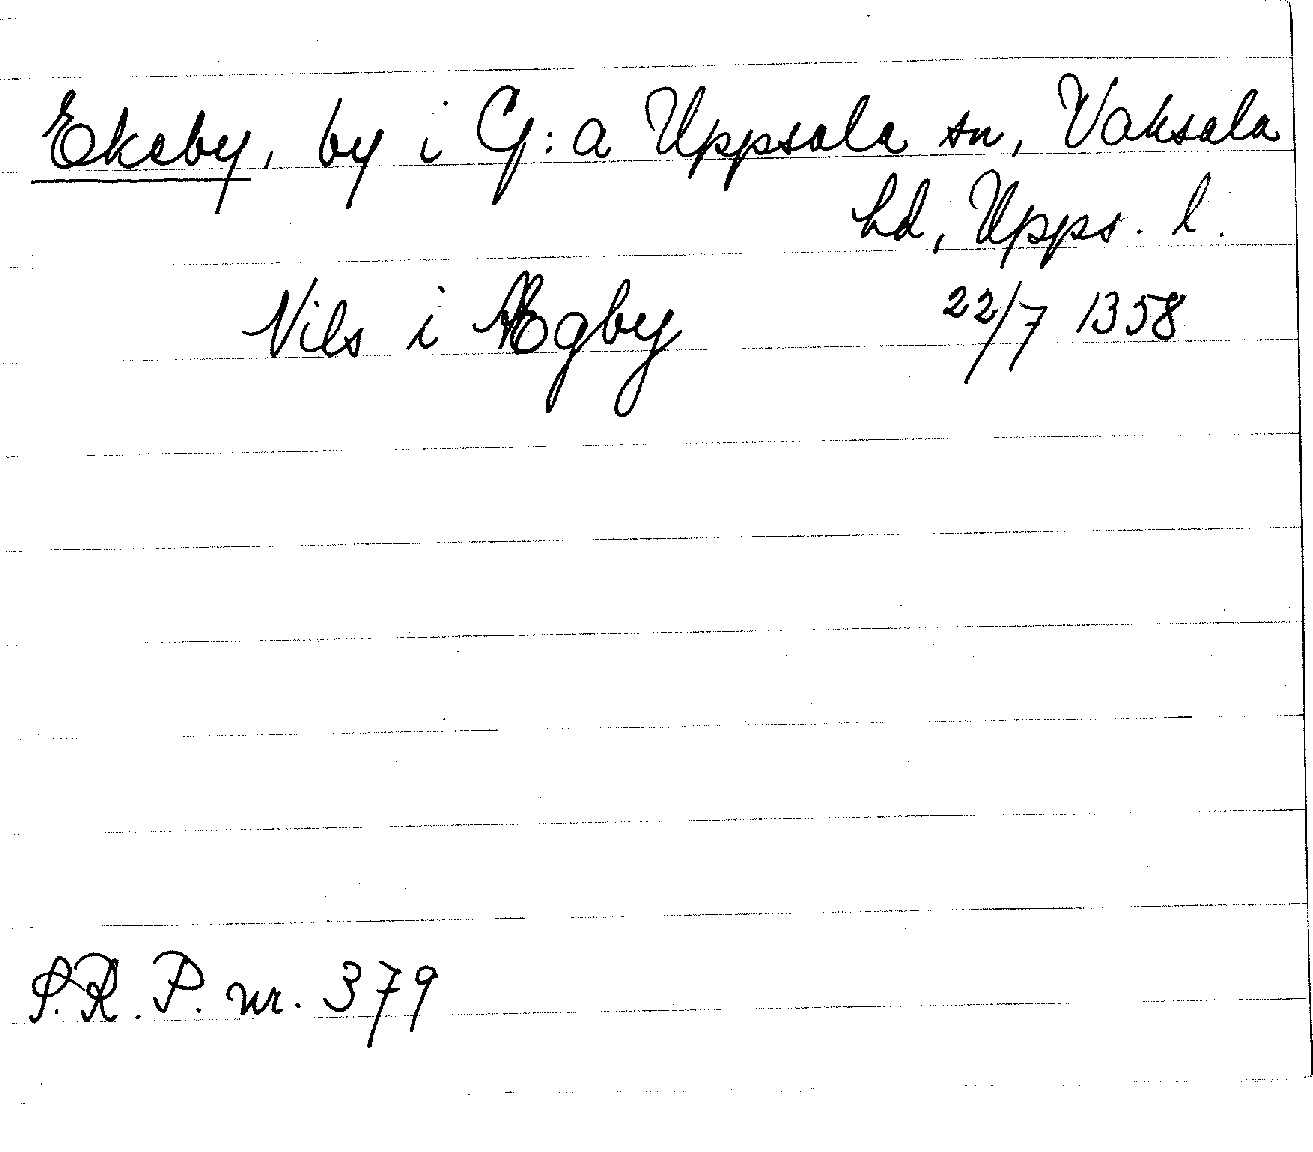 Ekeby, by i G:a Uppsala sn, Vaksala
hd, Upps. l.
Nils i Ægby 22/7 1358
S.R.P. nr. 379